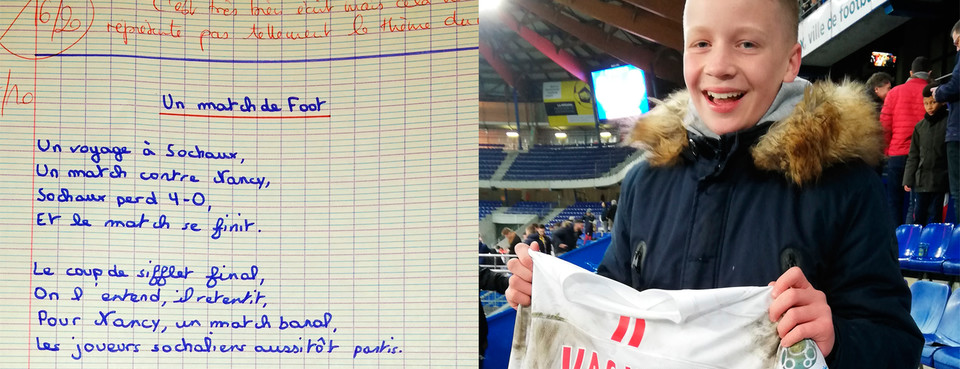 16/20
C'est très bien écrit mais cela
représente pas tellement le thème du
/10
Un match de Foot
Un voyage à Sochaux,
Un match contre Nancy,
Sochaux perd 4-0,
Et le match se finit.
Le coup de sifflet final,
On l'entend, il retentit,
Pour Nancy, un match banal,
Les joueurs sochaliens aussitôt partis.
ville de footba
11